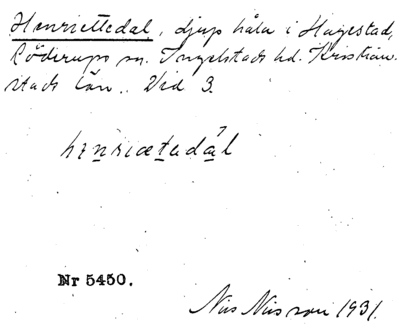 Henriettedal, djup håla i Hagestad,
Löderups sn. Ingelstads hd. Kristian-
stads län. Vid 3.
Nr 5450.
Nils Nilsson 1931.